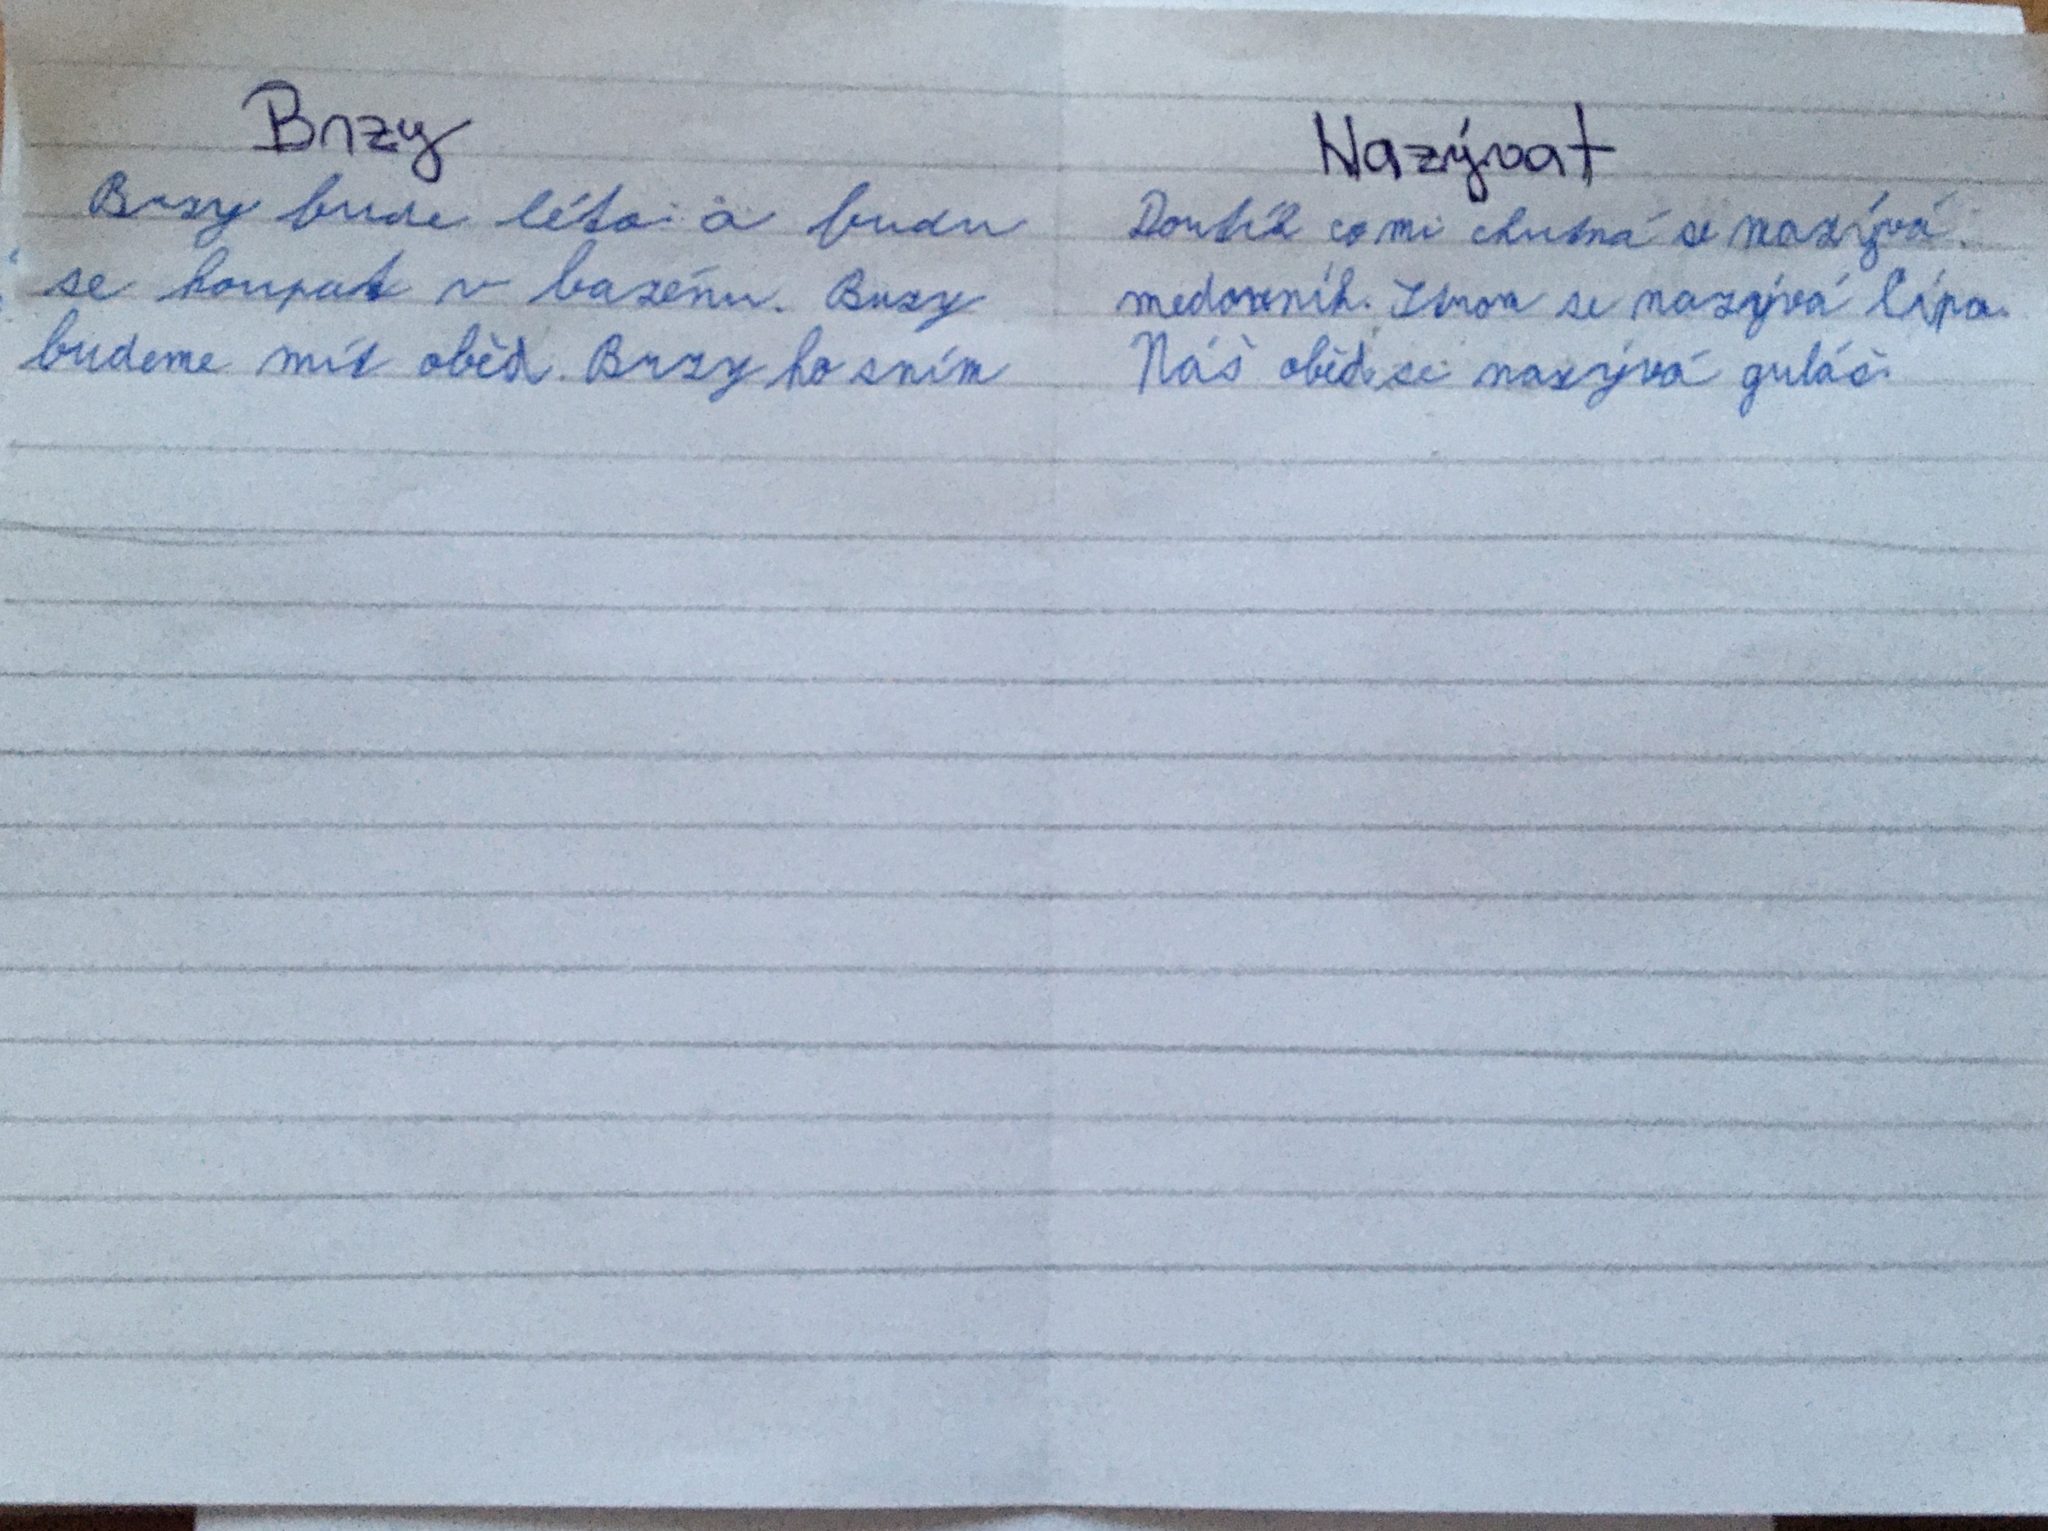 Brzy
Brzy bude léto a budu
se koupat v bazénu. Brzy
budeme mít oběd. Brzy ho sním
Nazývat
co mi chutná se nazývá
medovník. se nazývá lípa.
Náš oběd se nazývá guláš.